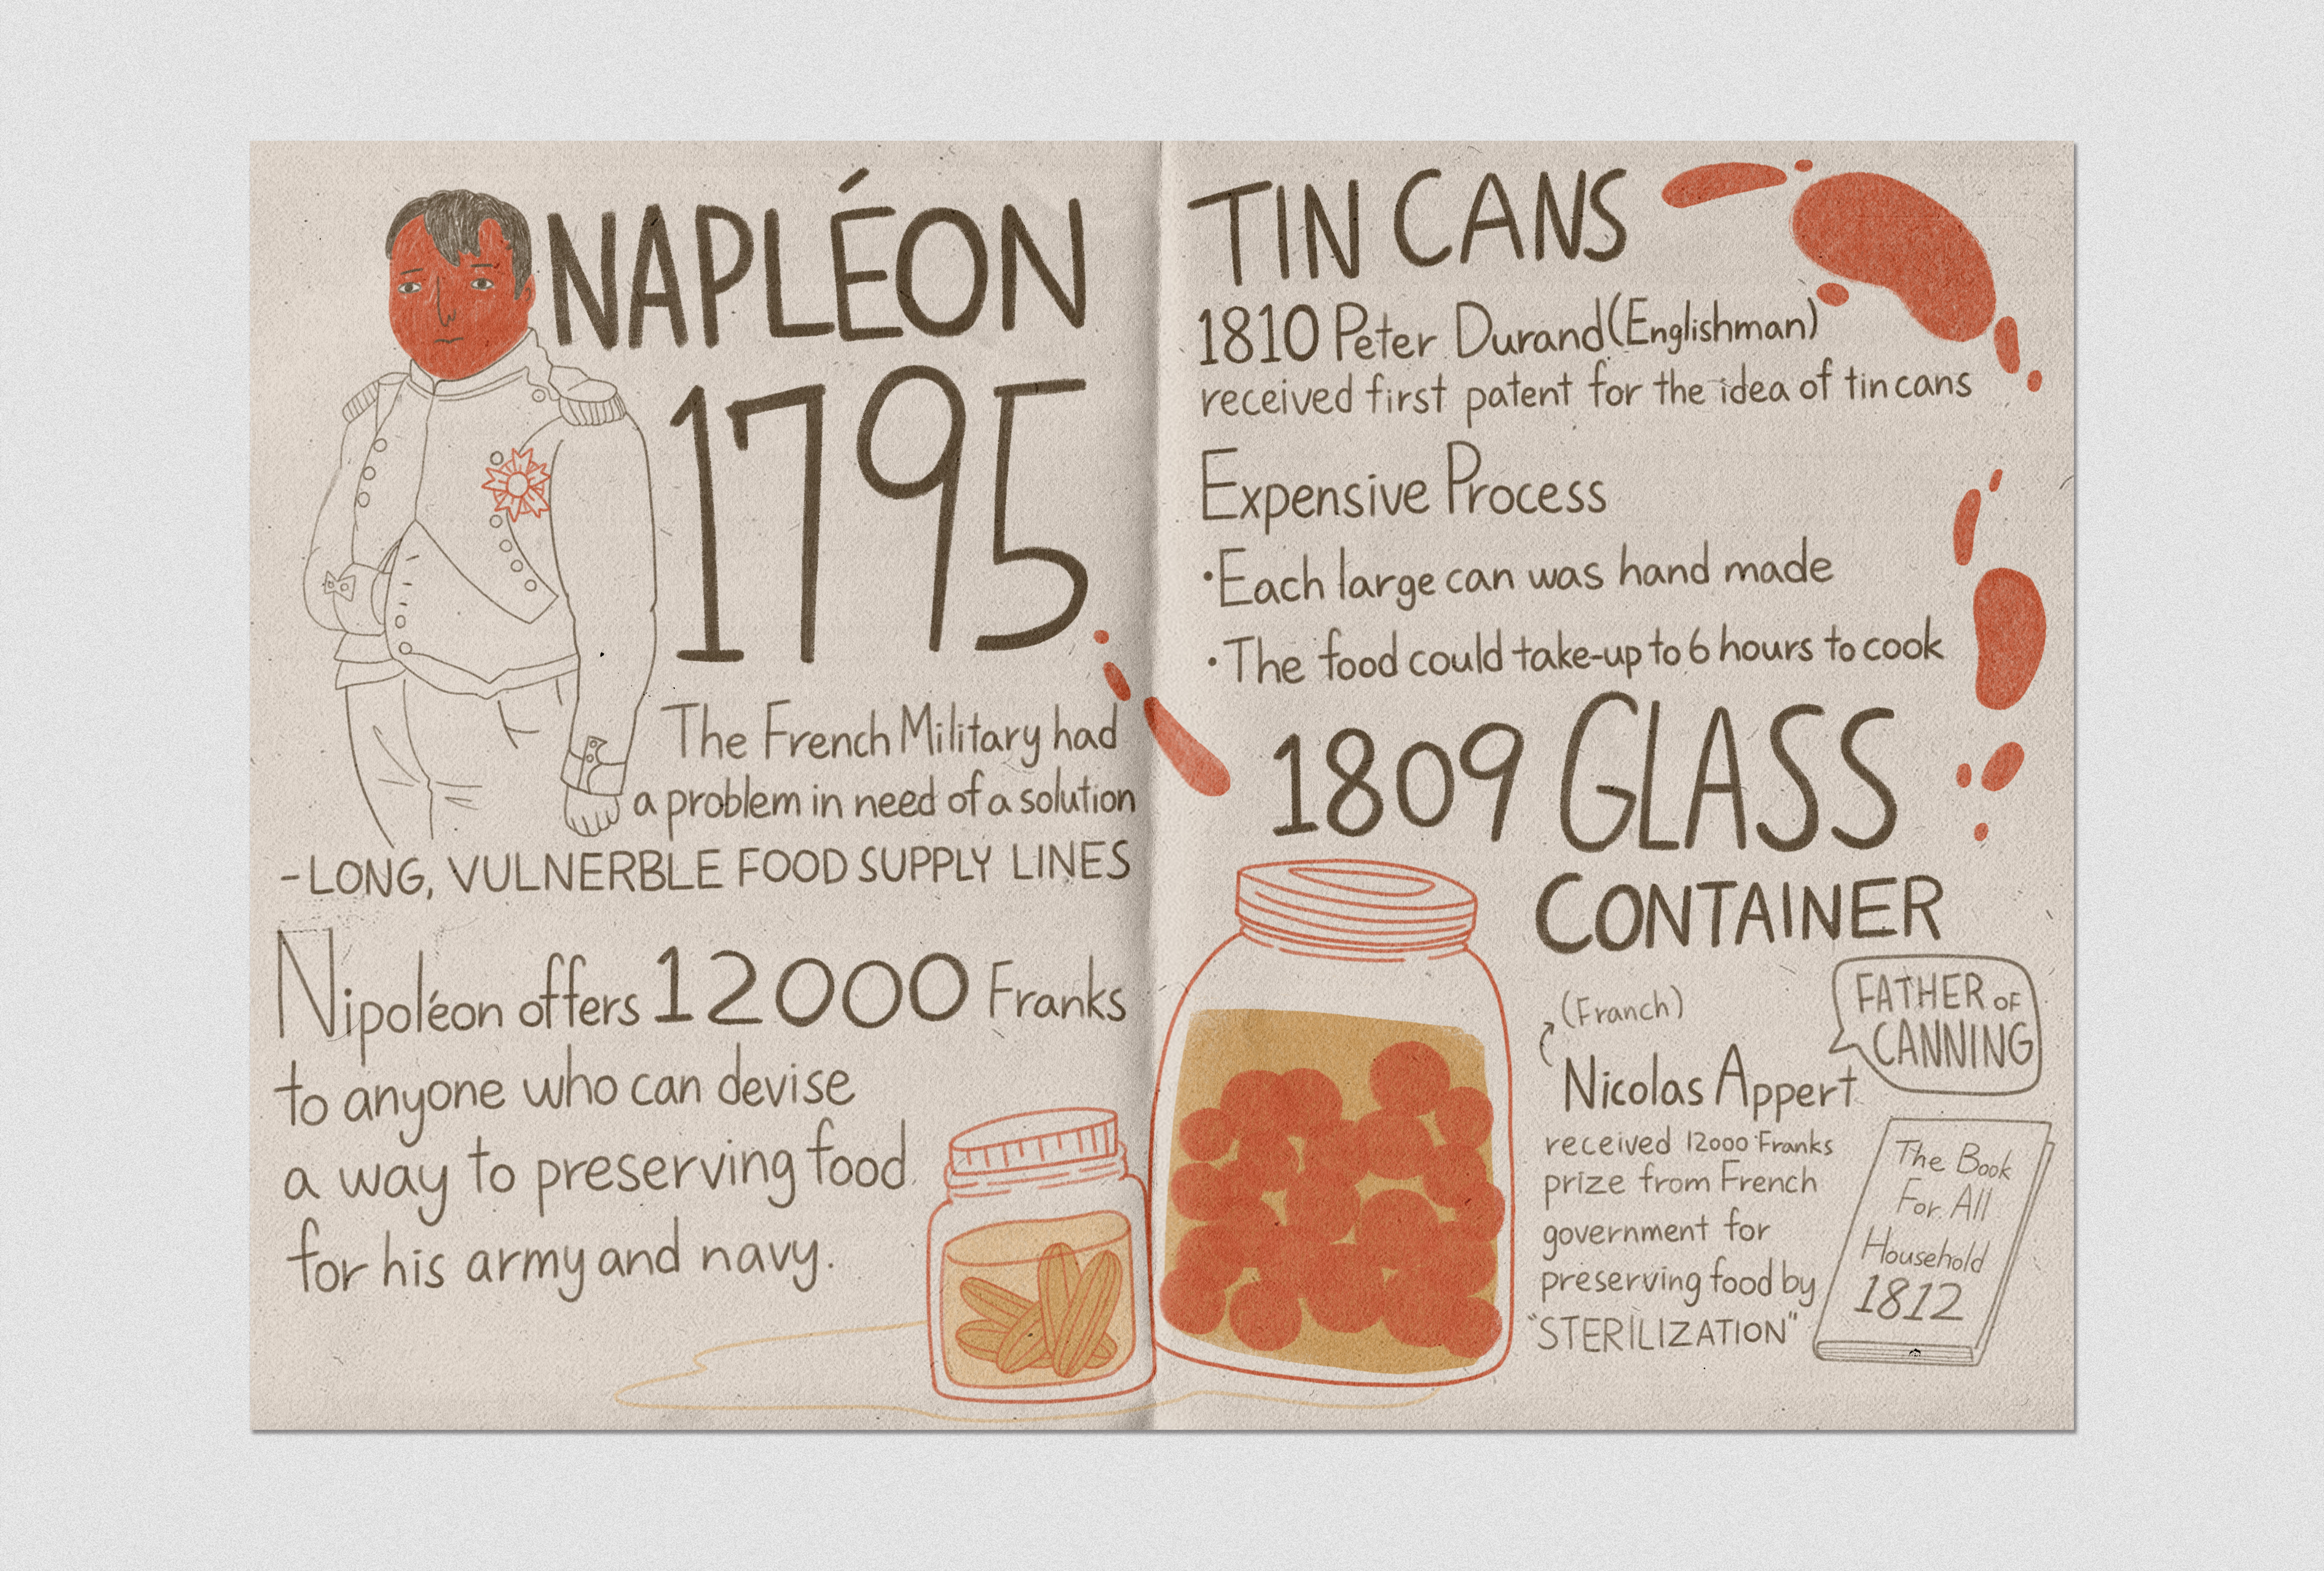 NAPLÉON
1795
The French Military had
a problem in need of a solution
- LONG, VULNERBLE FOOD SUPPLY LINES
Nipoléon offers 12000 Franks
to anyone who can devise
a way to preserving food
for his army and navy.
TIN CANS
1810 Peter Durand (Englishman)
received first patent for the idea of tin cans
Expensive Process
• Each large can was hand made
• The food could take-up to 6 hours to cook
1809 GLASS
CONTAINER
(Franch)
Nicolas Appert
FATHER OF
CANNING
received 12000 Franks
prize from French
government for
preserving food by
"STERILIZATION"
The Book
For All
Household
1812